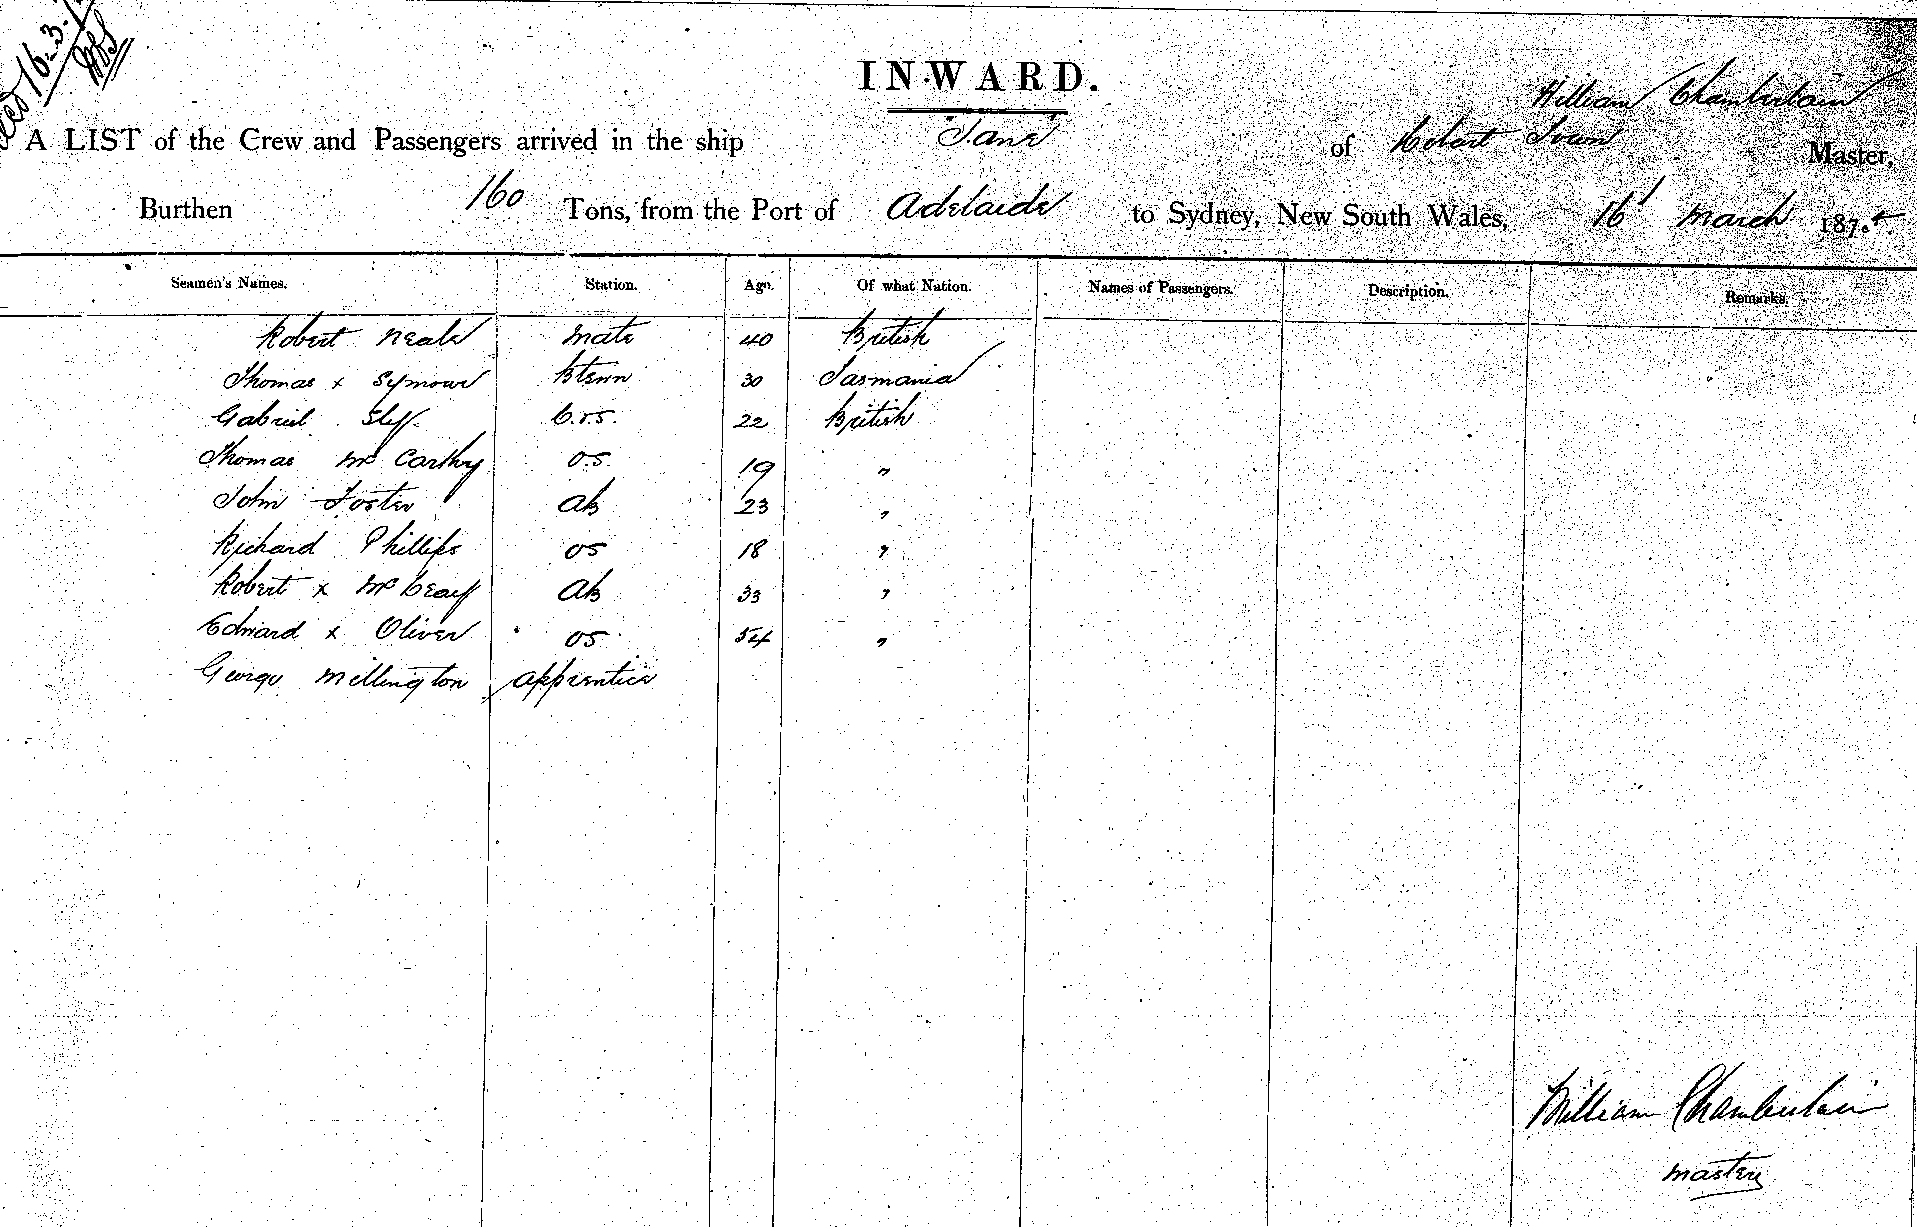 16.3.7
INWARD.
William Chamberlain
A LIST of the Crew and Passengers arrived in the ship "Jane" of Hobart Town Master,
Burthen 160 Tons, from the Port of Adelaide to Sydney, New South Wales, 16 March 187
Seamen's Names. Station. Age. Of what Nation. Names of Passengers. Description. Remarks.
Robert Neale Mate 40 British
Thomas x Symour 30 Tasmania
Gabriel 22 British
Thomas McCarthy OS 19 "
John Foster AB 23 "
Richard Phillips OS 18 "
Robert x AB 33 "
Edward x Oliver OS 54 "
George Millington apprentice
William Chamberlain
master